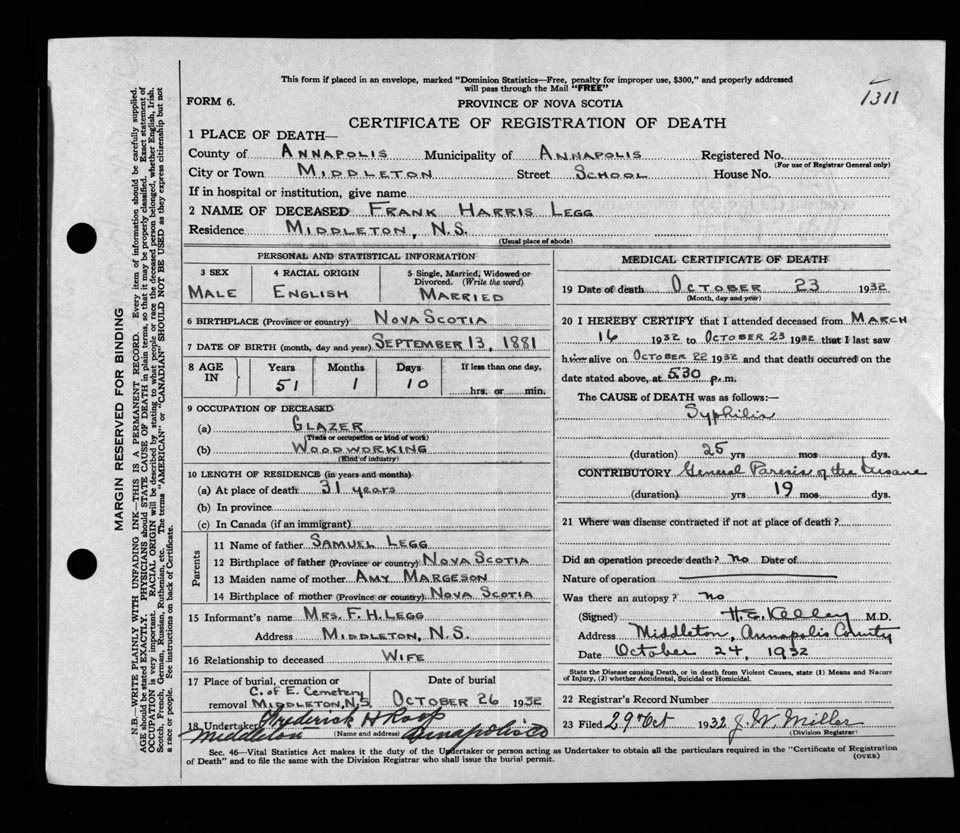 This form if placed in an envelope, marked "Dominion Statistics—Free, penalty for improper use, $300," and properly addressed
will pass through the Mail "FREE"
1311
FORM 6.
PROVINCE OF NOVA SCOTIA
CERTIFICATE OF REGISTRATION OF DEATH
1 PLACE OF DEATH—
County of ANNAPOLIS Municipality of ANNAPOLIS Registered No.
(For use of Registrar General only)
City or Town MIDDLETON Street SCHOOL House No.
If in hospital or institution, give name
2 NAME OF DECEASED FRANK HARRIS LEGG
Residence MIDDLETON, N.S.
(Usual place of abode)
PERSONAL AND STATISTICAL INFORMATION
3 SEX 4 RACIAL ORIGIN 5 Single, Married, Widowed or
Divorced. (Write the word)
MALE ENGLISH MARRIED
6 BIRTHPLACE (Province or country) NOVA SCOTIA
7 DATE OF BIRTH (month, day and year) SEPTEMBER 13, 1881
8 AGE IN Years Months Days If less than one day,
51 1 10 hrs. or min.
9 OCCUPATION OF DECEASED
(a) GLAZER
(Trade or occupation or kind of work)
(b) WOODWORKING
(Kind of industry)
10 LENGTH OF RESIDENCE (in years and months)
(a) At place of death 31 years
(b) In province
(c) In Canada (if an immigrant)
Parents
11 Name of father SAMUEL LEGG
12 Birthplace of father (Province or country) NOVA SCOTIA
13 Maiden name of mother AMY MARGESON
14 Birthplace of mother (Province or country) NOVA SCOTIA
15 Informant's name MRS. F. H. LEGG
Address MIDDLETON, N.S.
16 Relationship to deceased WIFE
17 Place of burial, cremation or Date of burial
C. of E. Cemetery
removal MIDDLETON, N.S OCTOBER 26 1932
18 Undertaker Frederick H Roop
Middleton (Name and address) Annapolis Co
MEDICAL CERTIFICATE OF DEATH
19 Date of death OCTOBER 23 1932
(Month, day and year)
20 I HEREBY CERTIFY that I attended deceased from MARCH
16 1932 to OCTOBER 23 1932 that I last saw
him alive on OCTOBER 22 1932 and that death occurred on the
date stated above, at 5.30 p. m.
The CAUSE of DEATH was as follows:—
Syphilis
(duration) 25 yrs. mos. dys.
CONTRIBUTORY General Paresis of the Insane
(duration) yrs 19 mos dys.
21 Where was disease contracted if not at place of death?
Did an operation precede death? no Date of
Nature of operation
Was there an autopsy? no
(Signed) H. E. Kelley M.D.
Address Middleton, Annapolis County
Date October 24, 1932
State the Disease causing Death, or in death from Violent Causes, state (1) Means and Nature
of Injury, (2) whether Accidental, Suicidal or Homicidal.
22 Registrar's Record Number
23 Filed 29th Oct 1932 J. W. Miller
(Division Registrar)
Sec. 46—Vital Statistics Act makes it the duty of the Undertaker or person acting as Undertaker to obtain all the particulars required in the "Certificate of Registration
of Death" and to file the same with the Division Registrar who shall issue the burial permit.
(OVER)
MARGIN RESERVED FOR BINDING
N.B.—WRITE PLAINLY WITH UNFADING INK—THIS IS A PERMANENT RECORD. Every item of information should be carefully supplied.
AGE should be stated EXACTLY. PHYSICIANS should STATE CAUSE OF DEATH in plain terms, so that it may be properly classified. Exact statement of
OCCUPATION is very important. RACIAL ORIGIN will be described by stating to what people or race the deceased person belonged, whether English, Irish,
Scotch, French, German, Russian, Ruthenian, etc. The terms "AMERICAN" or "CANADIAN" SHOULD NOT BE USED as they express citizenship but not
a race or people. See instructions on back of Certificate.